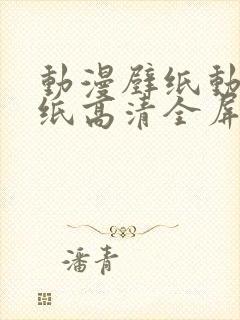 動漫壁纸動
纸高清全屏
潘青